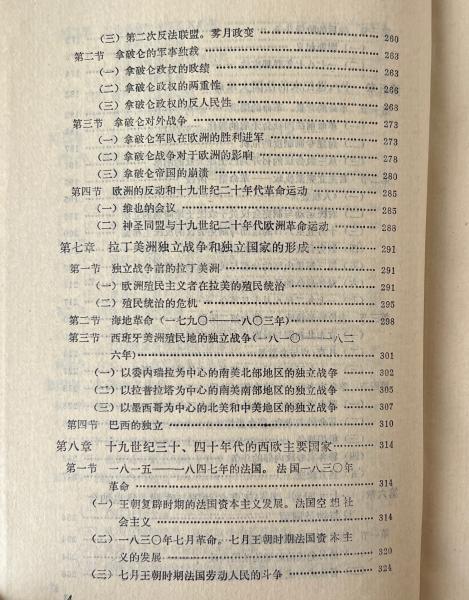 （三）第二次反法联盟。雾月政变 …… 260
第二节 拿破仑的军事独裁 …… 263
（一）拿破仑政权的政绩 …… 263
（二）拿破仑政权的两重性 …… 266
（三）拿破仑政权的反人民性 …… 268
第三节 拿破仑对外战争 …… 273
（一）拿破仑军队在欧洲的胜利进军 …… 273
（二）拿破仑战争对于欧洲的影响 …… 278
（三）拿破仑帝国的崩溃 …… 280
第四节 欧洲的反动和十九世纪二十年代革命运动 …… 285
（一）维也纳会议 …… 285
（二）神圣同盟与十九世纪二十年代欧洲革命运动 …… 288
第七章 拉丁美洲独立战争和独立国家的形成 …… 291
第一节 独立战争前的拉丁美洲 …… 291
（一）欧洲殖民主义者在拉美的殖民统治 …… 291
（二）殖民统治的危机 …… 295
第二节 海地革命（一七九〇——一八〇三年） …… 298
第三节 西班牙美洲殖民地的独立战争（一八一〇——一八二
六年） …… 301
（一）以委内瑞拉为中心的南美北部地区的独立战争 …… 302
（二）以拉普拉塔为中心的南美南部地区的独立战争 …… 305
（三）以墨西哥为中心的北美和中美地区的独立战争 …… 307
第四节 巴西的独立 …… 310
第八章 十九世纪三十、四十年代的西欧主要国家 …… 314
第一节 一八一五——一八四七年的法国。法国一八三〇年
革命 …… 314
（一）王朝复辟时期的法国资本主义发展。法国空想社
会主义 …… 314
（二）一八三〇年七月革命。七月王朝时期法国资本主
义的发展 …… 320
（三）七月王朝时期法国劳动人民的斗争 …… 324